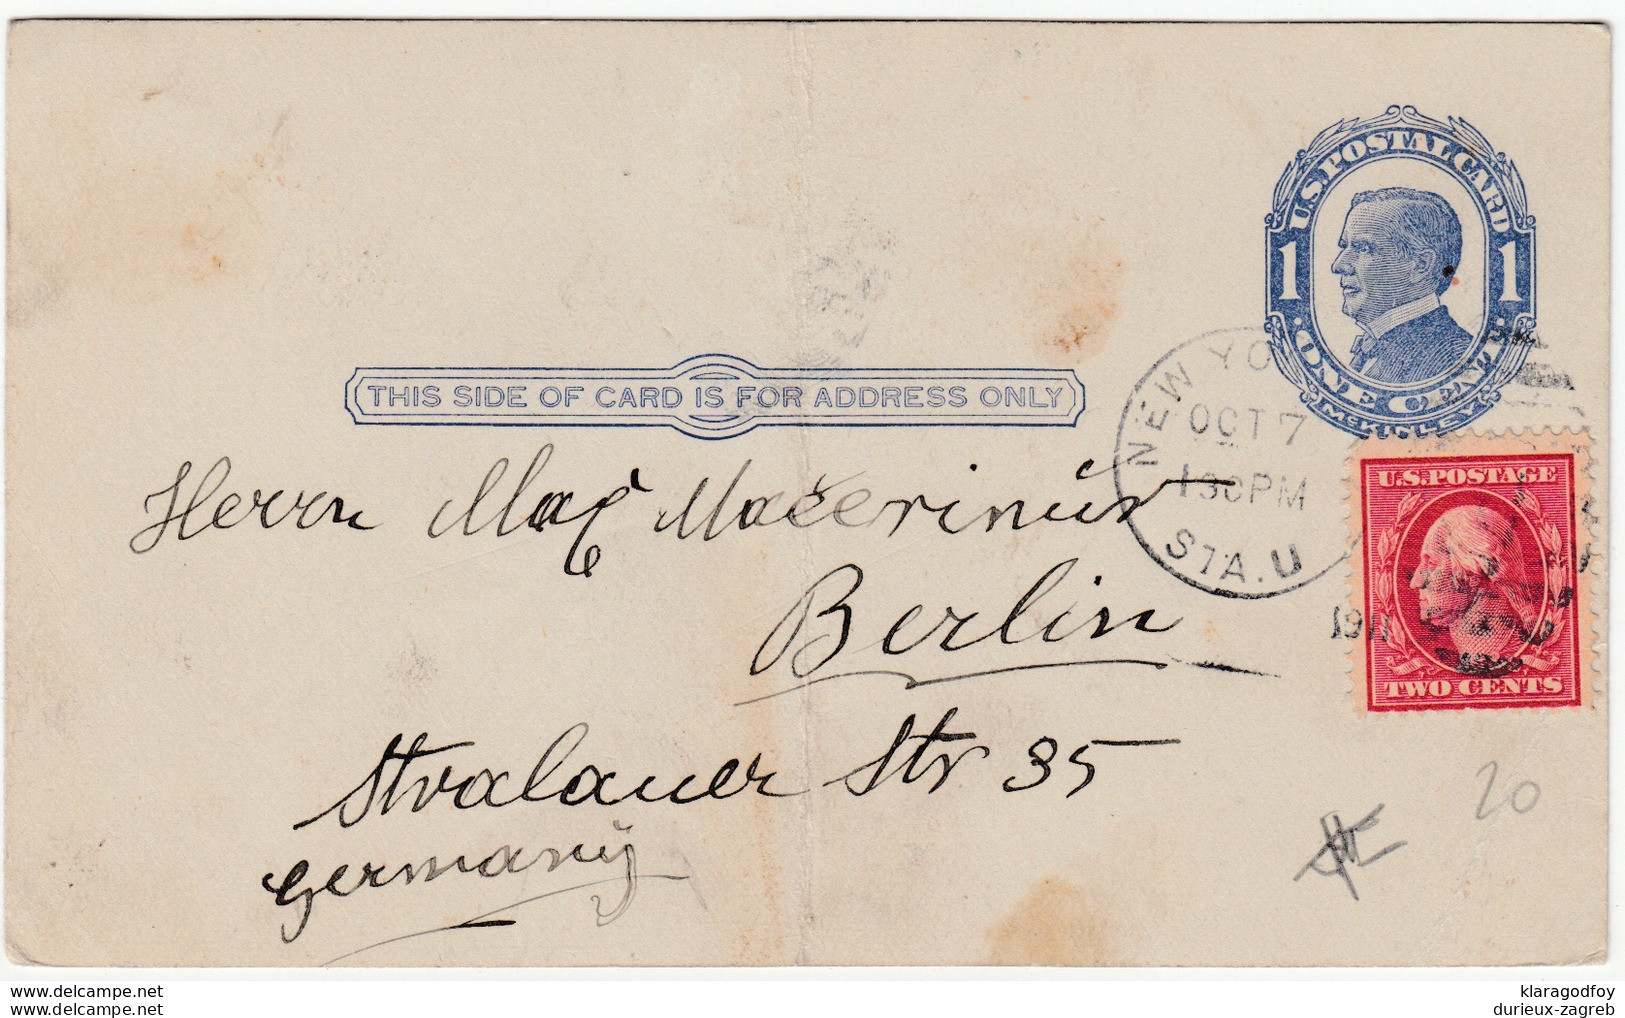 U.S. POSTAL CARD
1 1
ONE CENT
McKINLEY
THIS SIDE OF CARD IS FOR ADDRESS ONLY
NEW YO
OCT 7
130PM
STA. U
1911
U.S. POSTAGE
TWO CENTS
Herrn Max
Berlin
Stralauer Str 35
Germany
20
klaragodfoy
durieux-zagreb
www.delcampe.net
www.delcampe.net